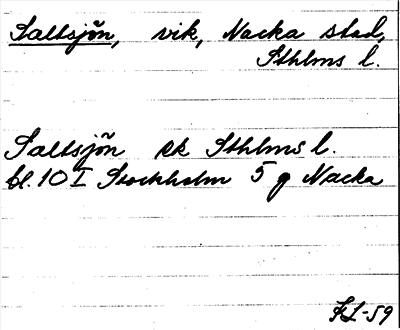 Saltsjön, vik, Nacka stad,
Sthlms l.
Saltsjön ek Sthlms l.
bl. 10 I Stockholm 5 g Nacka
KL-59